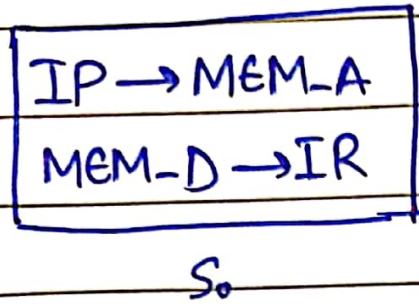 IP → MEM_A
MEM_D → IR
S₀